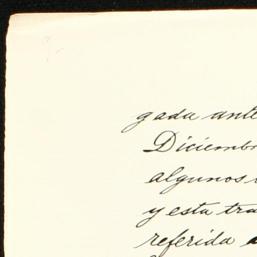 gada ante
Diciembr
algunos
y esta tra
referida a